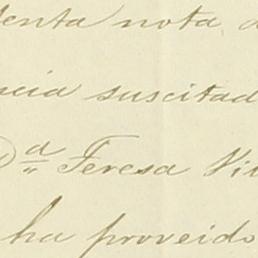 tenta nota d
ncia suscitad
D.ª Teresa Vi
ha proveido